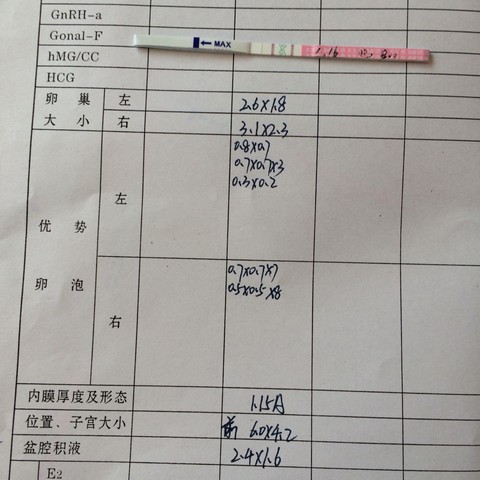 GnRH-a
Gonal-F
MAX
hMG/CC
HCG
卵巢 左 2.6×1.8
大小 右 3.1×2.3
0.8×0.7
0.7×0.7×3
0.3×0.2
左
优势
0.7×0.7×7
卵泡
0.5×0.5×8
右
内膜厚度及形态 1.15A
位置、子宫大小 前 6.0×4.2
盆腔积液 2.4×1.6
E2